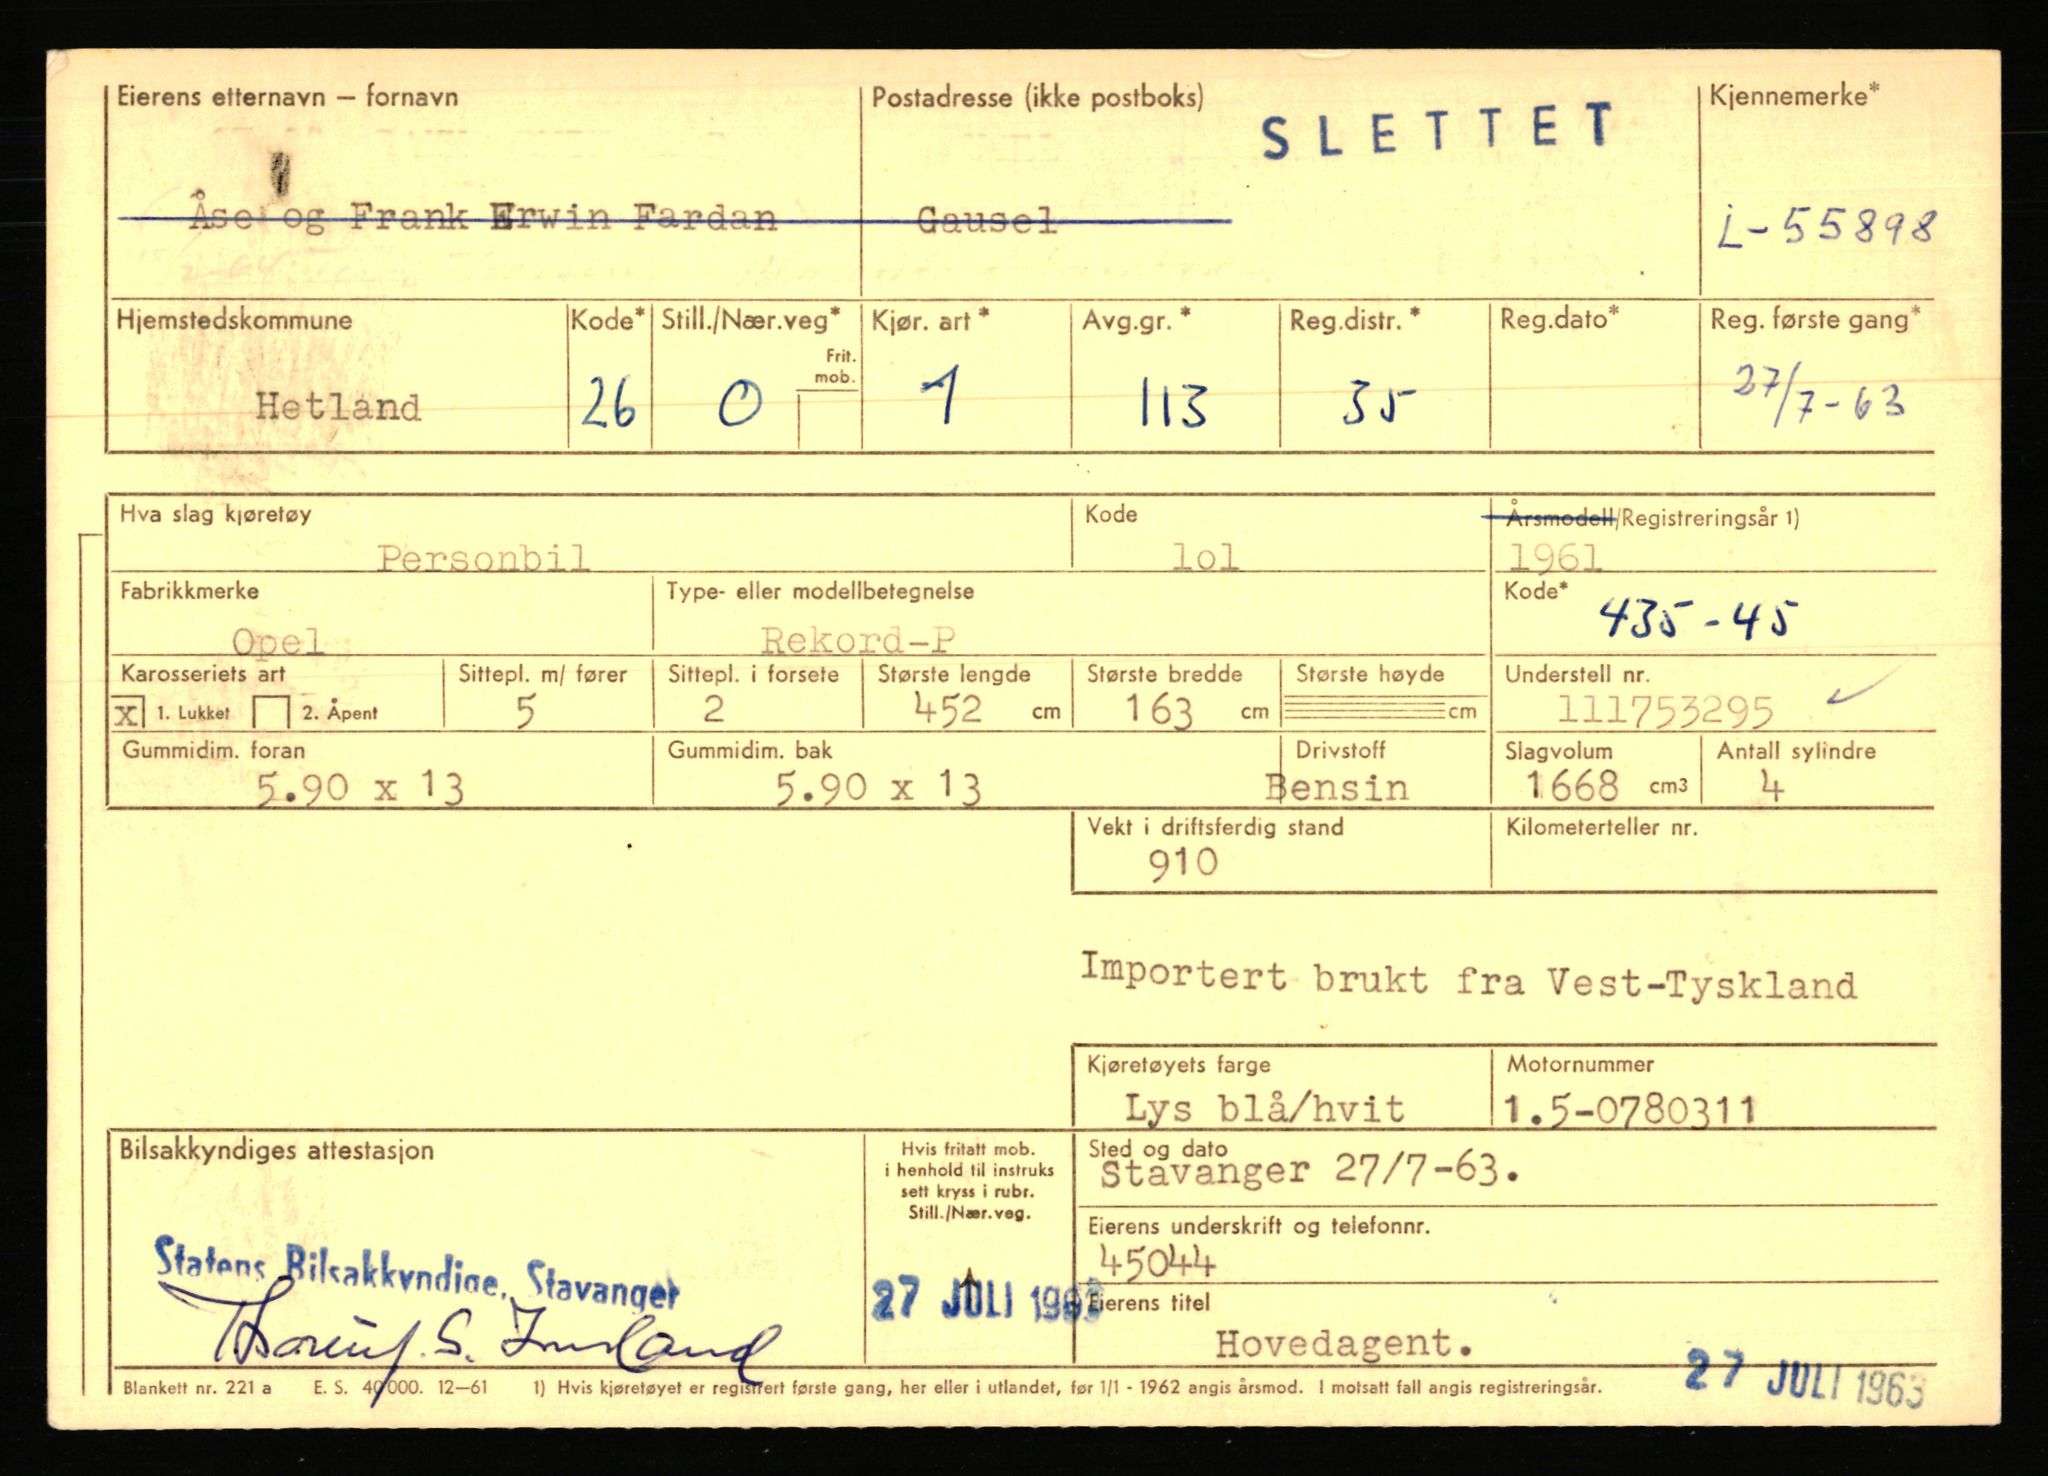 Eierens etternavn – fornavn
Postadresse (ikke postboks)
SLETTET
Kjennemerke*
Åse og Frank Erwin Fardan
Gausel
L-55898
Hjemstedskommune
Kode*
Still./Nær.veg*
Frit. mob.
Kjør. art*
Avg.gr.*
Reg.distr.*
Reg.dato*
Reg. første gang*
Hetland
26
0
1
113
35
27/7-63
Hva slag kjøretøy
Kode
Årsmodell/Registreringsår 1)
Personbil
lol
1961
Fabrikkmerke
Type- eller modellbetegnelse
Kode*
435-45
Opel
Rekord-P
Karosseriets art
Sittepl. m/ fører
Sittepl. i forsete
Største lengde
Største bredde
Største høyde
Understell nr.
X 1. Lukket 2. Åpent
5
2
452 cm
163 cm
cm
111753295
Gummidim. foran
Gummidim. bak
Drivstoff
Slagvolum
Antall sylindre
5.90 x 13
5.90 x 13
Bensin
1668 cm3
4
Vekt i driftsferdig stand
Kilometerteller nr.
910
Importert brukt fra Vest-Tyskland
Kjøretøyets farge
Motornummer
Lys blå/hvit
1.5-0780311
Bilsakkyndiges attestasjon
Hvis fritatt mob.
i henhold til instruks
sett kryss i rubr.
Still./Nær.veg.
Sted og dato
Stavanger 27/7-63.
Eierens underskrift og telefonnr.
45044
Statens Bilsakkyndige, Stavanger
27 JULI 1963
Eierens titel
Hovedagent.
27 JULI 1963
Blankett nr. 221 a E. S. 40 000. 12–61 1) Hvis kjøretøyet er registrert første gang, her eller i utlandet, før 1/1 - 1962 angis årsmod. I motsatt fall angis registreringsår.